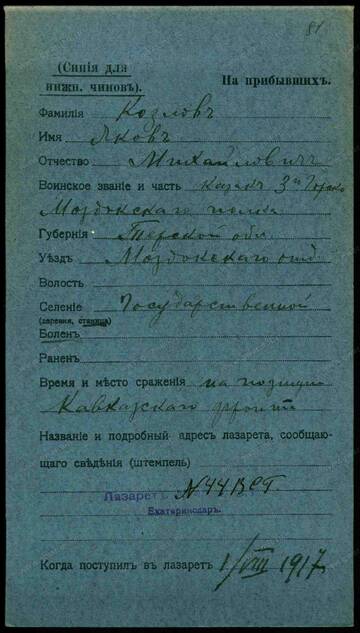 81
(Синія для
нижн. чиновъ).
На прибывшихъ.
Фамилія Козловъ
Имя Яковъ
Отчество Михайловичъ
Воинское званіе и часть казакъ 3го Горско
Моздокскаго полка
Губернія Терской обл
Уѣздъ Моздокскаго отд
Волость
Селеніе Государственной
(деревня, станица)
Боленъ
Раненъ
Время и мѣсто сраженія на позиции
Кавказскаго фронта
Названіе и подробный адресъ лазарета, сообщаю-
щаго свѣдѣнія (штемпель)
Лазаретъ №44 ВСГ
Екатеринодаръ.
Когда поступилъ въ лазаретъ 1/VIII 1917